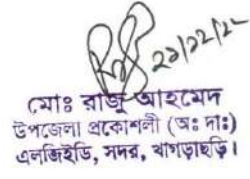 ২১/১২/২২
মোঃ রাজু আহমেদ
উপজেলা প্রকৌশলী (অঃ দাঃ)
এলজিইডি, সদর, খাগড়াছড়ি।